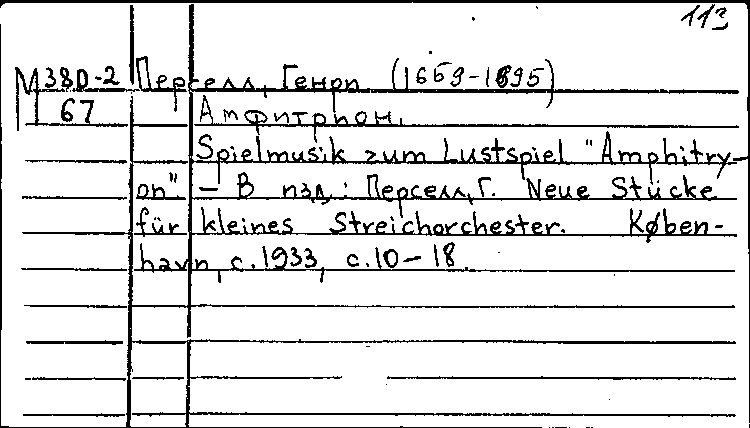 113
М380-2 Перселл, Генри (1659-1695)
67 Амфитрион.
Spielmusik zum Lustspiel "Amphitry-
on". — В изд.: Перселл, Г. Neue Stücke
für kleines Streichorchester. Køben-
havn, c.1933, с.10-18